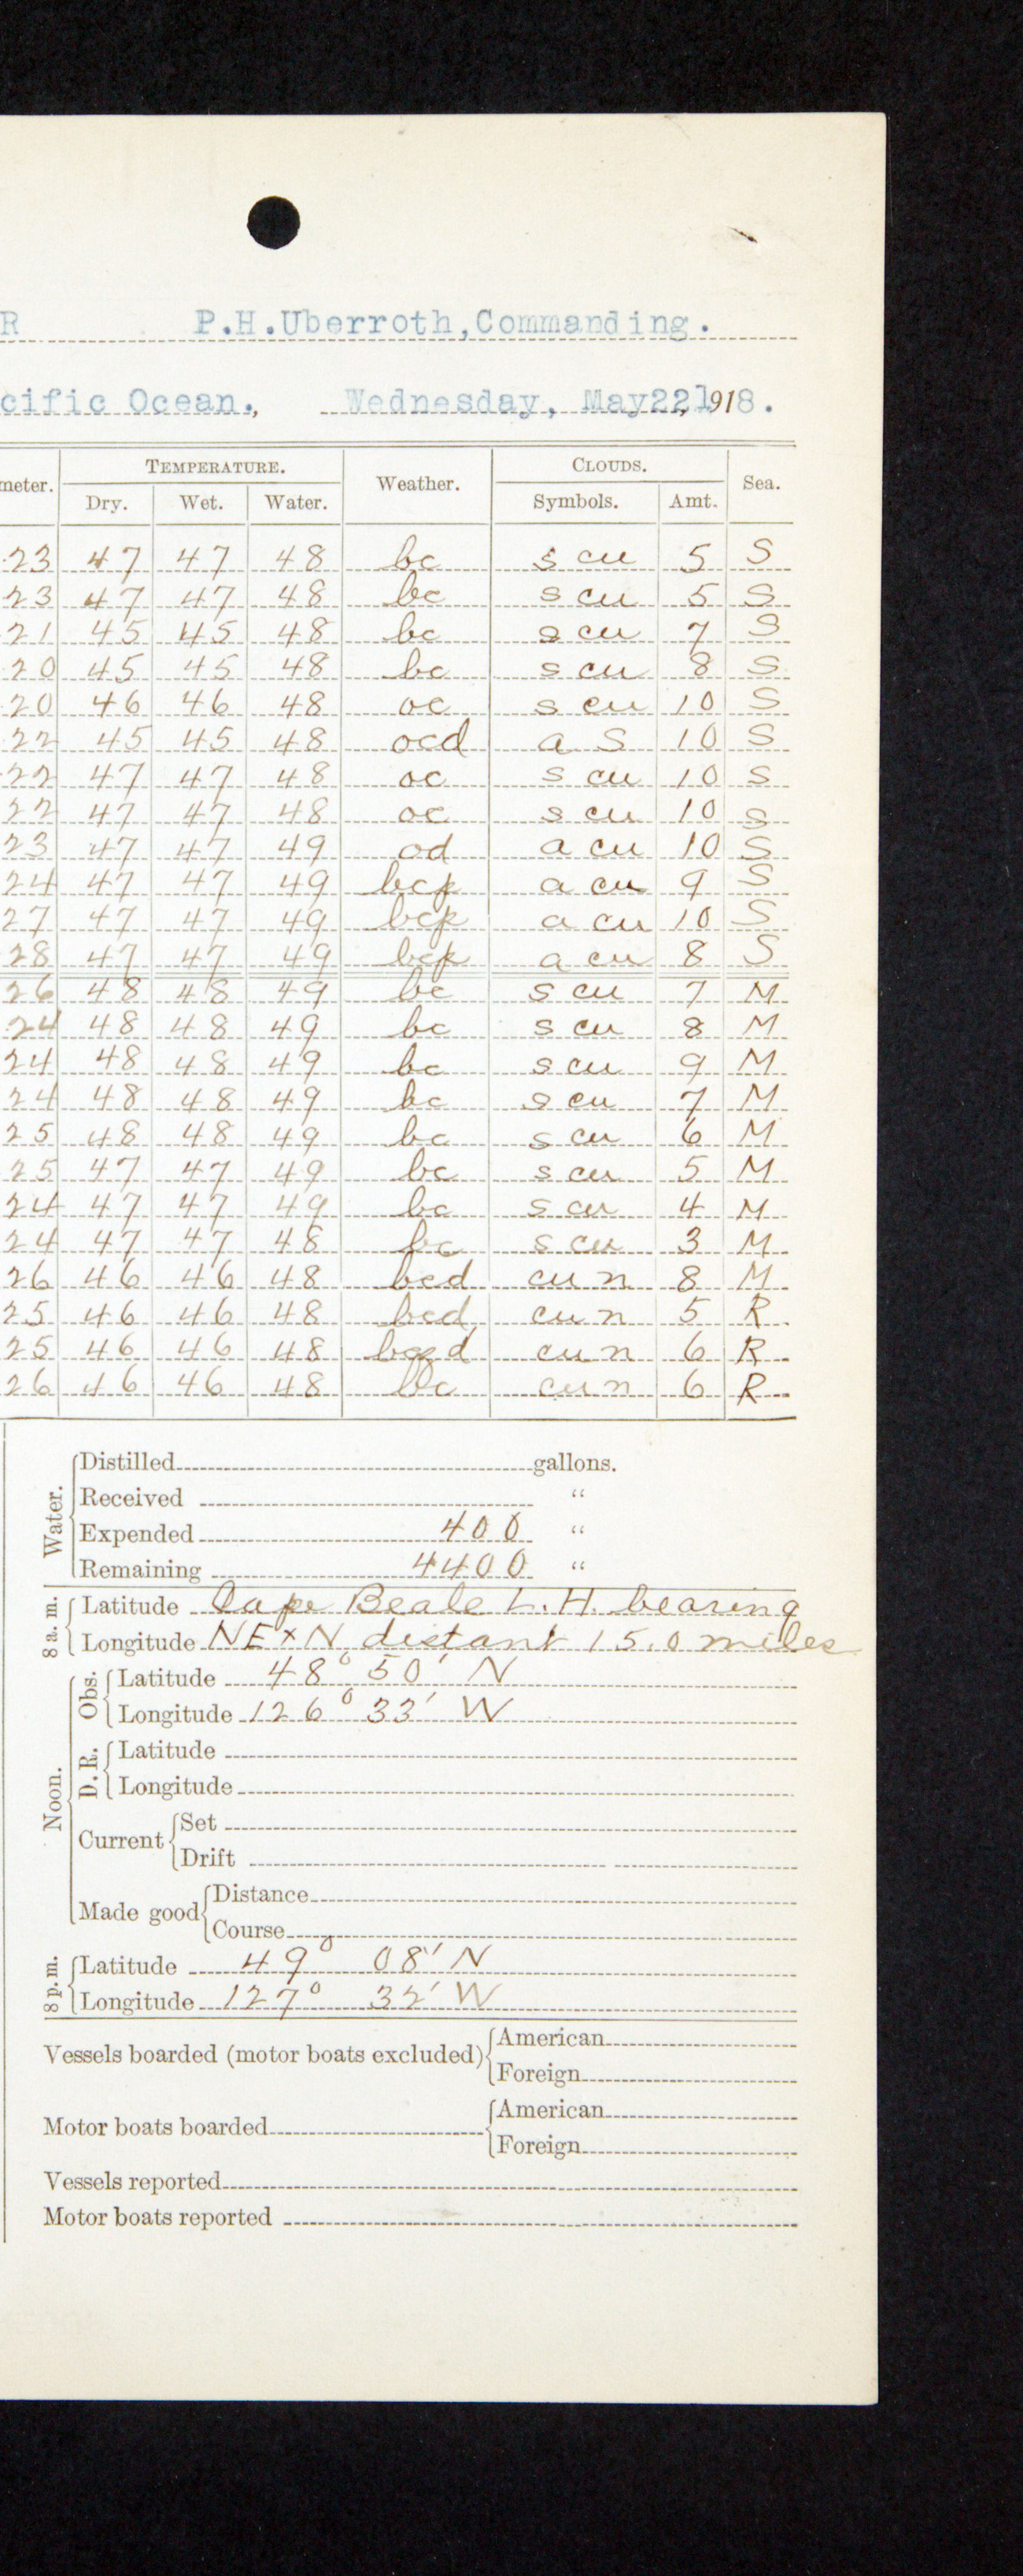 R P.H.Uberroth,Commanding.
cific Ocean., Wednesday, May22,1918.
meter. TEMPERATURE. Weather. CLOUDS. Sea.
Dry. Wet. Water. Symbols. Amt.
.23 47 47 48 bc s cu 5 S
23 47 47 48 bc s cu 5 S
21 45 45 48 bc s cu 7 S
20 45 45 48 bc s cu 8 S
20 46 46 48 oc s cu 10 S
22 45 45 48 ocd a s 10 S
22 47 47 48 oc s cu 10 S
22 47 47 48 oc s cu 10 S
23 47 47 49 od a cu 10 S
24 47 47 49 bcp a cu 9 S
27 47 47 49 bcp a cu 10 S
28 47 47 49 bcp a cu 8 S
26 48 48 49 bc s cu 7 M
.24 48 48 49 bc s cu 8 M
24 48 48 49 bc s cu 9 M
24 48 48 49 bc s cu 7 M
25 48 48 49 bc s cu 6 M
25 47 47 49 bc s cu 5 M
24 47 47 49 bc s cu 4 M
24 47 47 48 bc s cu 3 M
26 46 46 48 bcd cu n 8 M
25 46 46 48 bcd cu n 5 R
25 46 46 48 cu n 6 R
26 46 46 48 bc cu n 6 R
Water.
Distilled gallons.
Received "
Expended 400 "
Remaining 4400 "
8 a. m.
Latitude Cape Beale L.H. bearing
Longitude NExN distant 15.0 miles
Noon.
Obs.
Latitude 48° 50' N
Longitude 126° 33' W
D. R.
Latitude
Longitude
Current
Set
Drift
Made good
Distance
Course
8 p. m.
Latitude 49° 08' N
Longitude 127° 32' W
Vessels boarded (motor boats excluded)
American
Foreign
Motor boats boarded
American
Foreign
Vessels reported
Motor boats reported